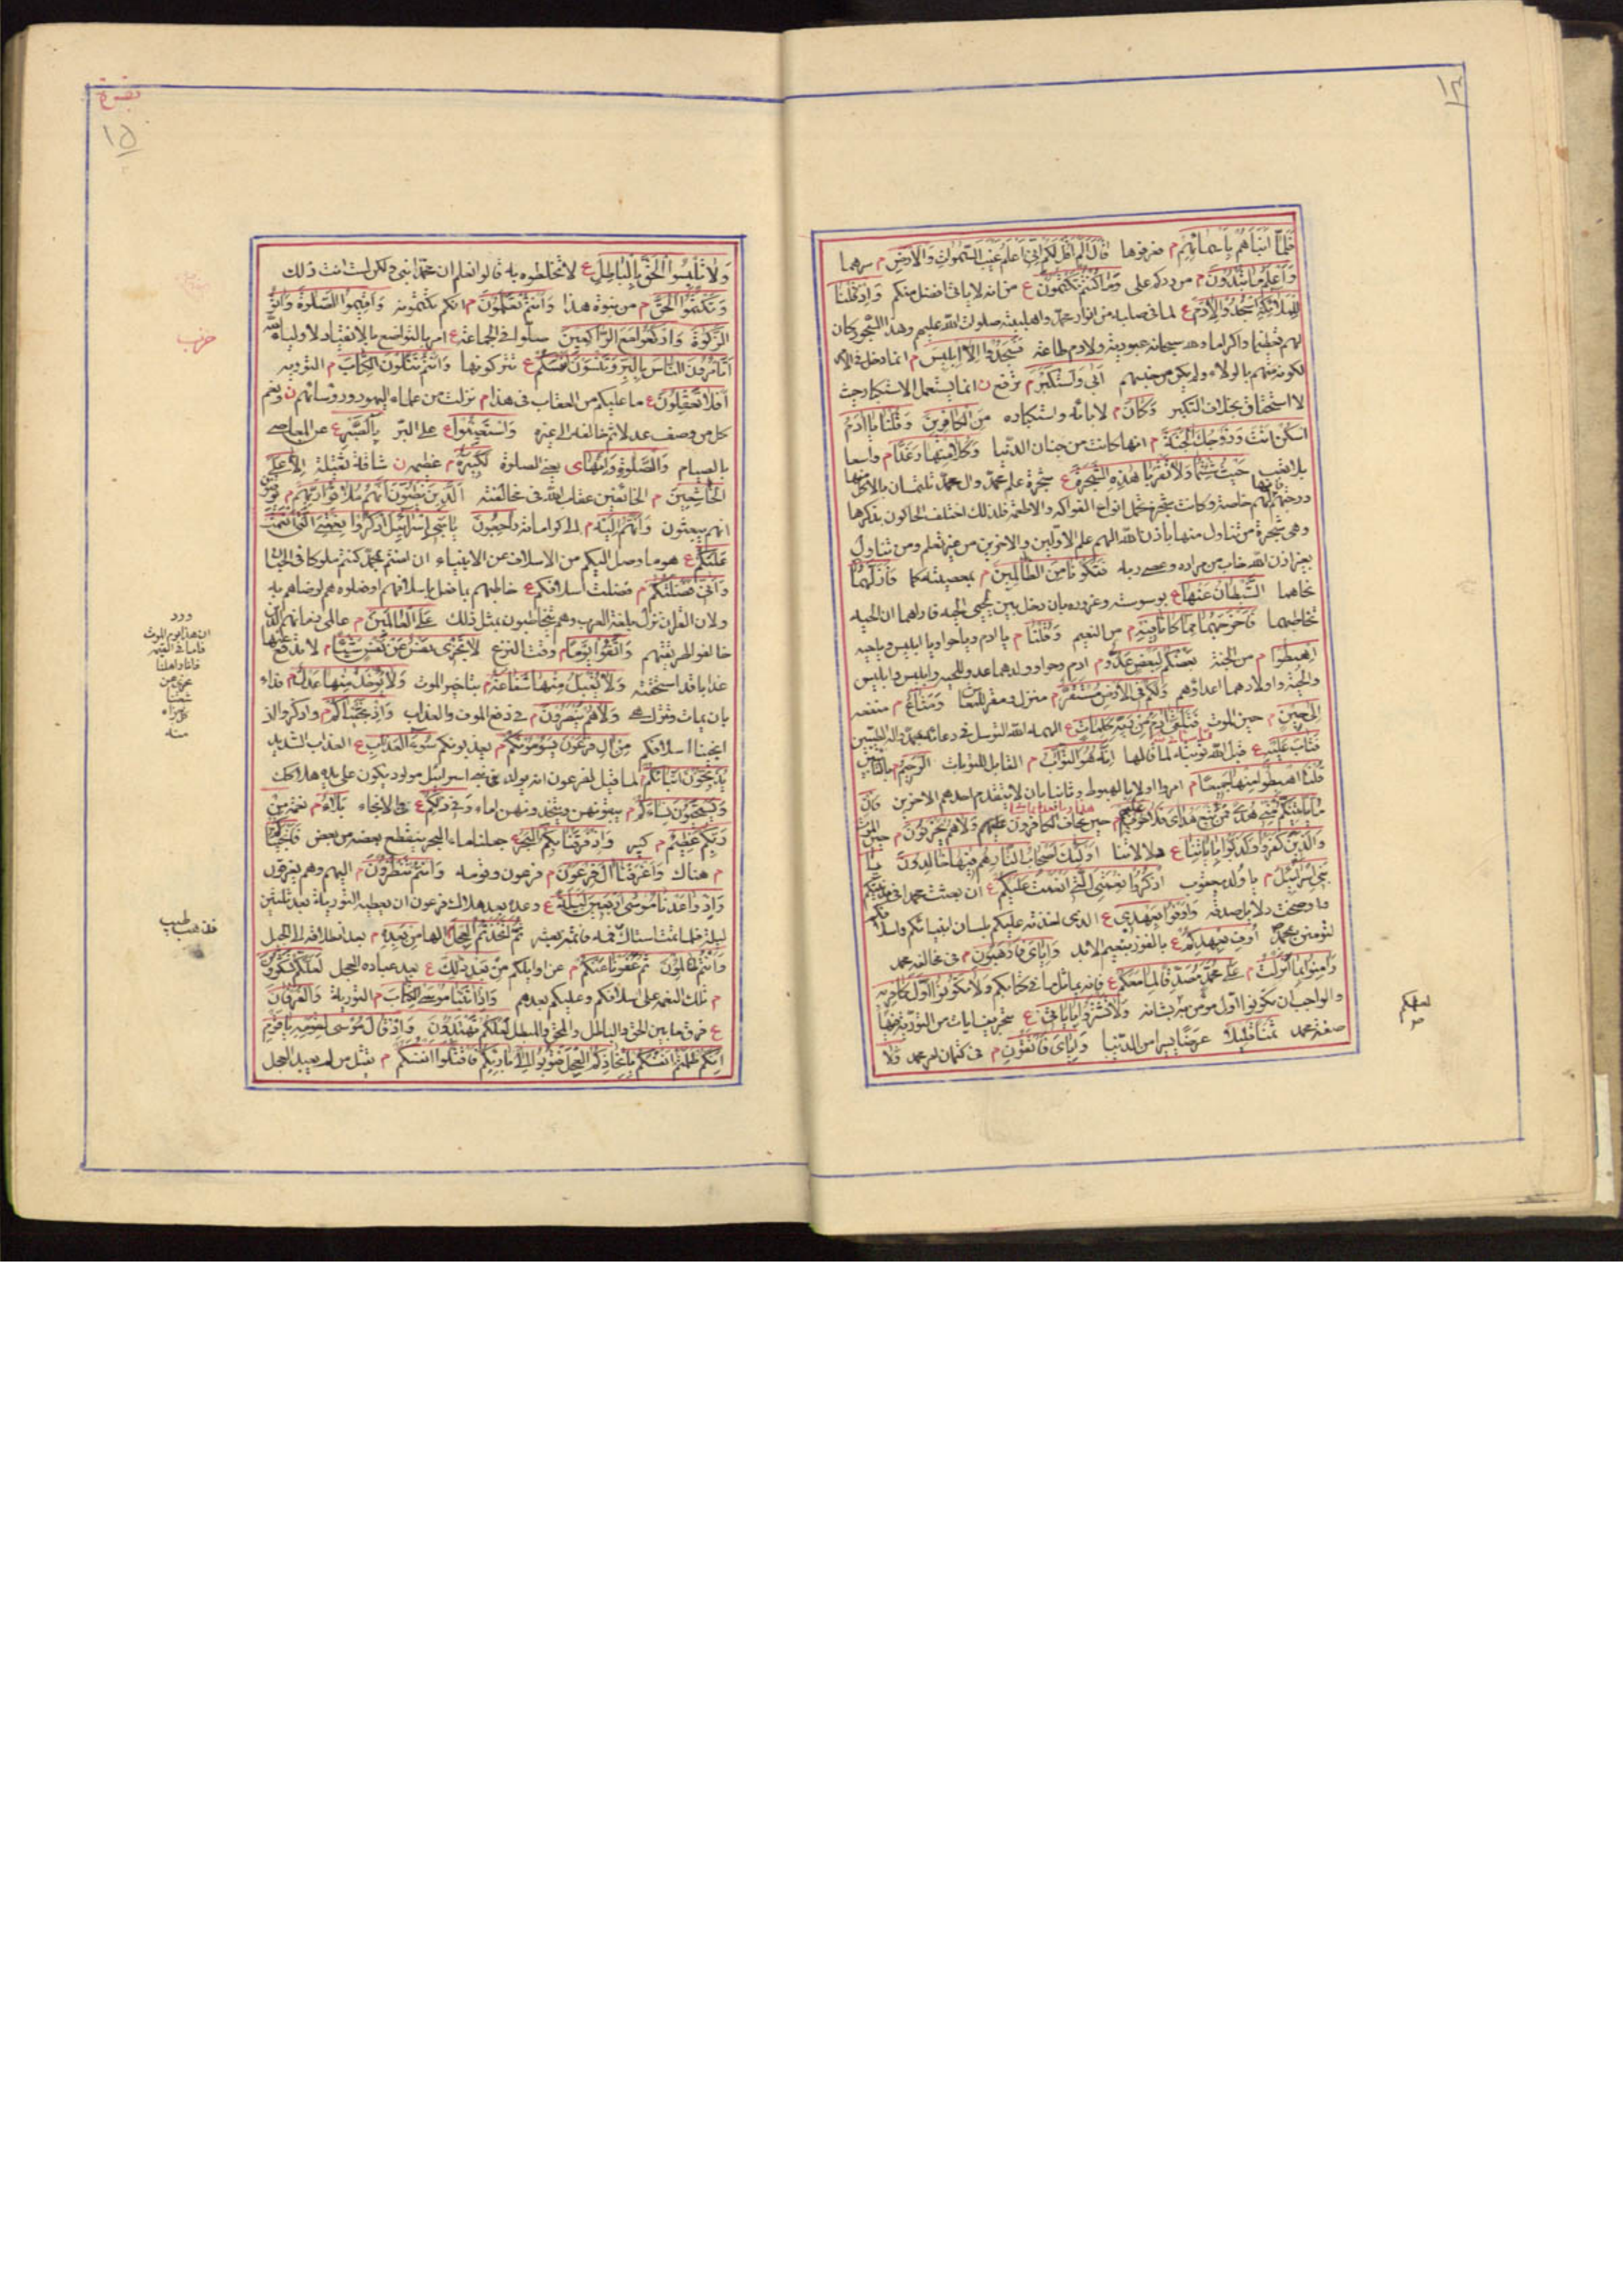 ١٤
فَلَمَّا أَنْبَأَهُمْ بِأَسْمَائِهِمْ م فعرفوها قَالَ أَلَمْ أَقُلْ لَكُمْ إِنِّي أَعْلَمُ غَيْبَ السَّمَوَاتِ وَالْأَرْضِ م سرهما
وَأَعْلَمُ مَا تُبْدُونَ م من ردكم على وَمَا كُنْتُمْ تَكْتُمُونَ ع من انه لا ياتى افضل منكم وَإِذْ قُلْنَا
لِلْمَلَائِكَةِ اسْجُدُوا لِآدَمَ ع لما فى صلبه من انوار محمد واهلبيته صلوات الله عليهم وهذا السجود كان
لهم تعظيما واكراما ولله سبحانه عبودية ولادم طاعة فَسَجَدُوا إِلَّا إِبْلِيسَ م انما دخل فى الامر
لكونه منهم بالولاء ولم يكن من جنسهم أَبَى وَاسْتَكْبَرَ م ترفع ن انما يستعمل الاستكبار حيث
لا استحقاق بخلاف التكبر وَكَانَ م لابائه واستكباره مِنَ الْكَافِرِينَ وَقُلْنَا يَا آدَمُ
اسْكُنْ أَنْتَ وَزَوْجُكَ الْجَنَّةَ م انها كانت من جنان الدنيا وَكُلَا مِنْهَا رَغَدًا م واسعا
بلا تعب حَيْثُ شِئْتُمَا وَلَا تَقْرَبَا هَذِهِ الشَّجَرَةَ ع شجرة علم محمد وال محمد تلتمسان بالاكل منها
درجتهم خاصة وكانت شجرة تحمل انواع الفواكه والاطعمة فلذلك اختلف الحاكون بذكرها
وهى شجرة من تناول منها باذن الله الهم علم الاولين والاخرين من غير تعلم ومن تناول
بغير اذن الله خاب من مراده وعصى ربه فَتَكُونَا مِنَ الظَّالِمِينَ م بمعصيتكما فَأَزَلَّهُمَا
نحاهما الشَّيْطَانُ عَنْهَا ع بوسوسته وغروره بان دخل بين لحيى الحية فاراهما ان الحية
تخاطبهما فَأَخْرَجَهُمَا مِمَّا كَانَا فِيهِ م من النعيم وَقُلْنَا م يا ادم ويا حوا ويا ابليس ويا حية
اهْبِطُوا م من الجنة بَعْضُكُمْ لِبَعْضٍ عَدُوٌّ م ادم وحوا وولدهما عدو للحية وابليس وابليس
والحية واولادهما اعداؤهم وَلَكُمْ فِي الْأَرْضِ مُسْتَقَرٌّ م منزل ومقر للمعاش وَمَتَاعٌ م منفعة
إِلَى حِينٍ م حين الموت فَتَلَقَّى آدَمُ مِنْ رَبِّهِ كَلِمَاتٍ ع الهمه الله التوسل فى دعائه بمحمد واله الطيبين
فَتَابَ عَلَيْهِ ع قبل الله توبته لما قالها إِنَّهُ هُوَ التَّوَّابُ م القابل للتوبات الرَّحِيمُ م بالتائبين
قُلْنَا اهْبِطُوا مِنْهَا جَمِيعًا م امروا اولا بالهبوط وثانيا بان لا يتقدم احدهم الاخرين فَإِمَّا
يَأْتِيَنَّكُمْ مِنِّي هُدًى فَمَنْ تَبِعَ هُدَايَ فَلَا خَوْفٌ عَلَيْهِمْ م حين يخاف الكافرون وَلَا هُمْ يَحْزَنُونَ م حين الموت
وَالَّذِينَ كَفَرُوا وَكَذَّبُوا بِآيَاتِنَا ع أُولَئِكَ أَصْحَابُ النَّارِ هُمْ فِيهَا خَالِدُونَ يَا
بَنِي إِسْرَائِيلَ م يا ولد يعقوب اذْكُرُوا نِعْمَتِيَ الَّتِي أَنْعَمْتُ عَلَيْكُمْ ع ان بعثت محمدا فى مدينتكم
ووضحت دلايل صدقه وَأَوْفُوا بِعَهْدِي ع الذى اخذته عليكم بلسان انبيائكم واسلافكم
لتؤمنن بمحمد أُوفِ بِعَهْدِكُمْ ع بالفوز بنعيم الابد وَإِيَّايَ فَارْهَبُونِ م فى مخالفة محمد
وَآمِنُوا بِمَا أَنْزَلْتُ م على محمد مُصَدِّقًا لِمَا مَعَكُمْ ع فانه يماثل ما فى كتابكم وَلَا تَكُونُوا أَوَّلَ كَافِرٍ بِهِ
والواجب ان تكونوا اول مؤمن به وَلَا تَشْتَرُوا بِآيَاتِي ع بتحريف ايات من التورية فيها
صفة محمد ثَمَنًا قَلِيلًا عرضا يسيرا من الدنيا وَإِيَّايَ فَاتَّقُونِ م فى كتمان امر محمد وَلَا
بقرة
١٥
وَلَا تَلْبِسُوا الْحَقَّ بِالْبَاطِلِ ع لا تخلطوه به قالوا نعلم ان محمدا نبى ولكن لست انت ذلك
وَتَكْتُمُوا الْحَقَّ م من نبوة هذا وَأَنْتُمْ تَعْلَمُونَ م انكم تكتمونه وَأَقِيمُوا الصَّلَوةَ وَآتُوا
الزَّكَوةَ وَارْكَعُوا مَعَ الرَّاكِعِينَ صلوا فى الجماعة ع امر بالتواضع بالانقياد لاولياء الله
أَتَأْمُرُونَ النَّاسَ بِالْبِرِّ وَتَنْسَوْنَ أَنْفُسَكُمْ ع تتركونها وَأَنْتُمْ تَتْلُونَ الْكِتَابَ م التورية
أَفَلَا تَعْقِلُونَ ع ما عليكم من العقاب فى هذا م نزلت من علماء اليهود ورؤسائهم ن وتعم
كل من وصف عدلا ثم خالفه الى غيره وَاسْتَعِينُوا ع على البر بِالصَّبْرِ ع عن المعاصى
بالصيام وَالصَّلَوةِ وَإِنَّهَا ى يعنى الصلوة لَكَبِيرَةٌ م عظيمة ن شاقة ثقيلة إِلَّا عَلَى
الْخَاشِعِينَ م الخائفين عقاب الله فى مخالفته الَّذِينَ يَظُنُّونَ أَنَّهُمْ مُلَاقُوا رَبِّهِمْ م يوقنون
انهم يبعثون وَأَنَّهُمْ إِلَيْهِ م الى كراماته رَاجِعُونَ يَا بَنِي إِسْرَائِيلَ اذْكُرُوا نِعْمَتِيَ الَّتِي أَنْعَمْتُ
عَلَيْكُمْ ع هو ما وصل اليكم من الاسلاف عن الانبياء ان امنتم بمحمد كنتم ملوكا فى الجنان
وَأَنِّي فَضَّلْتُكُمْ م فضلت اسلافكم ع خاطبهم بما فعل باسلافهم او فعلوه هم لرضاهم به
ولان القران نزل بلغة العرب وهم يتخاطبون بمثل ذلك عَلَى الْعَالَمِينَ م عالمى زمانهم الذين
خالفوا طريقتهم وَاتَّقُوا يَوْمًا م وقت النزع لَا تَجْزِي نَفْسٌ عَنْ نَفْسٍ شَيْئًا م لا تدفع عنها
عذابا قد استحقته وَلَا يُقْبَلُ مِنْهَا شَفَاعَةٌ م بتاخير الموت وَلَا يُؤْخَذُ مِنْهَا عَدْلٌ م فداء
بان يمات وتترك هى وَلَا هُمْ يُنْصَرُونَ م فى دفع الموت والعذاب وَإِذْ نَجَّيْنَاكُمْ م واذكروا اذ
انجينا اسلافكم مِنْ آلِ فِرْعَوْنَ يَسُومُونَكُمْ م يعذبونكم سُوءَ الْعَذَابِ ع العذاب الشديد
يُذَبِّحُونَ أَبْنَاءَكُمْ لما قيل لفرعون انه يولد فى بنى اسرائيل مولود يكون على يده هلاكك
وَيَسْتَحْيُونَ نِسَاءَكُمْ م يبقونهن ويتخذونهن اماء وَفِي ذَلِكُمْ ع الانجاء بَلَاءٌ م نعمة مِنْ
رَبِّكُمْ عَظِيمٌ م كبير وَإِذْ فَرَقْنَا بِكُمُ الْبَحْرَ ع جعلنا ماء البحر ينقطع بعضه من بعض فَأَنْجَيْنَاكُمْ
م هناك وَأَغْرَقْنَا آلَ فِرْعَوْنَ م فرعون وقومه وَأَنْتُمْ تَنْظُرُونَ م اليهم وهم يغرقون
وَإِذْ وَاعَدْنَا مُوسَى أَرْبَعِينَ لَيْلَةً ع وعده بعد هلاك فرعون ان يعطيه التورية بعد ثلثين
ليلة فلما تمت استاك فمه فاتمه بعشر ثُمَّ اتَّخَذْتُمُ الْعِجْلَ الها مِنْ بَعْدِهِ م بعد انطلاقه الى الجبل
وَأَنْتُمْ ظَالِمُونَ ثُمَّ عَفَوْنَا عَنْكُمْ م عن اوايلكم مِنْ بَعْدِ ذَلِكَ ع بعد عباده العجل لَعَلَّكُمْ تَشْكُرُونَ
م تلك النعمة على اسلافكم وعليكم بعدهم وَإِذْ آتَيْنَا مُوسَى الْكِتَابَ م التورية وَالْفُرْقَانَ
ع فرق ما بين الحق والباطل والمحق والمبطل لَعَلَّكُمْ تَهْتَدُونَ وَإِذْ قَالَ مُوسَى لِقَوْمِهِ يَا قَوْمِ
إِنَّكُمْ ظَلَمْتُمْ أَنْفُسَكُمْ بِاتِّخَاذِكُمُ الْعِجْلَ فَتُوبُوا إِلَى بَارِئِكُمْ فَاقْتُلُوا أَنْفُسَكُمْ م يقتل من لم يعبد العجل
حزب
ورد
ان هذا يوم الموت
فاما فى القيمة
فانا واهلنا
نجزى عن
شيعتنا
كل جزاء
منه